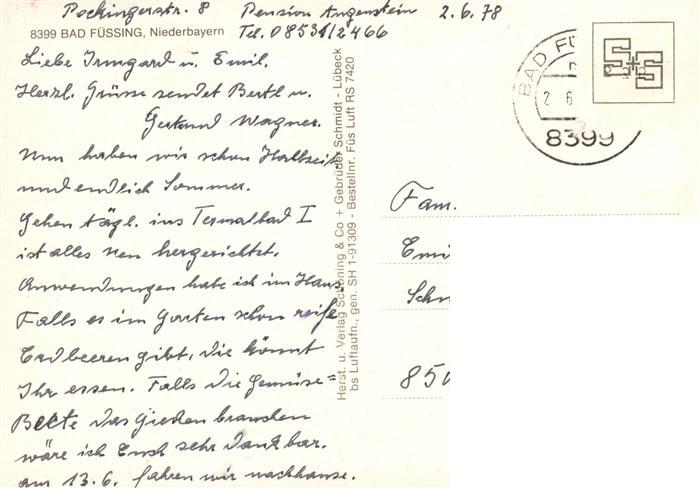 Pockingerstr. 8 Pension Angenstein 2.6.78
8399 BAD FÜSSING, Niederbayern Tel. 08531/2466
Liebe Irmgard u. Emil.
Herzl. Grüsse sendet Bertl u.
Gertrud Wagner.
Nun haben wir schon Halbzeit
und endlich Sommer.
Gehen tägl. ins Termalbad I
ist alles neu hergerichtet.
Anwendungen habe ich im Haus.
Falls es im Garten schon reife
Erdbeeren gibt, die könnt
Ihr essen. Falls die Gemüse=
Beete das Gießen brauchen
wäre ich Euch sehr dankbar.
am 13.6. fahren wir nachhause.
Herst. u. Verlag Schöning & Co + Gebrüder Schmidt - Lübeck
bs Luftaufn., gen. SH 1-91309 - Bestellnr. Füs Luft RS 7420
BAD FÜ
2 6
8399
S+S
Fam.
Emi
Schn
850